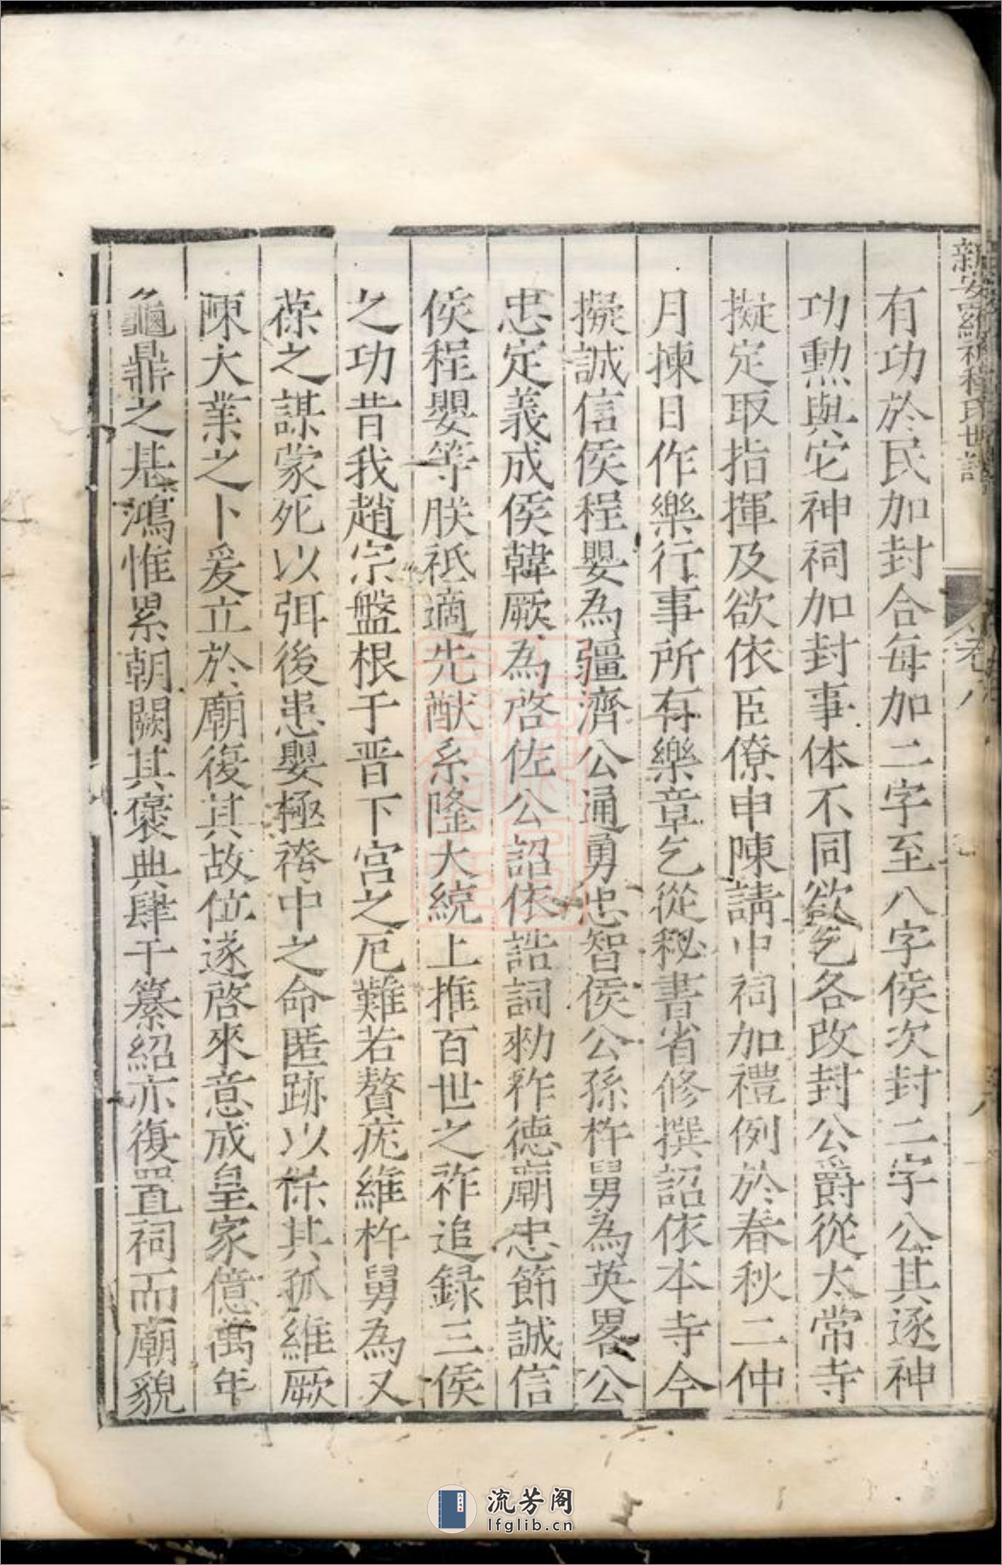 有功於民加封合每加二字至八字侯次封二字公其逐神
功勲與它神祠加封事体不同欲乞各改封公爵從太常寺
擬定取指揮及欲依臣僚申陳請中祠加禮例於春秋二仲
月揀日作樂行事所有樂章乞從秘書省修撰詔依本寺今
擬誠信侯程嬰為疆濟公通勇忠智侯公孫杵舅為英畧公
忠定義成侯韓厥為啓佐公詔依誥詞勑祚德廟忠節誠信
侯程嬰等朕祗遹先猷系隆大統上推百世之祚追録三侯
之功昔我趙宗盤根于晋下宫之厄難若贅疣維杵舅為又
葆之謀蒙死以弭後患嬰極袴中之命匿跡以保其孤維厥
陳大業之卜爰立於廟復其故位遂啓來意成皇家億萬年
龜鼎之基鴻惟累朝闕其褒典肆干纂紹亦復置祠而廟貌
卷八
流芳阁
lfglib.cn